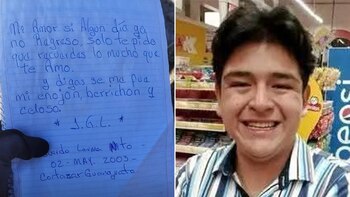 Mi Amor si Algún día ya
no Regreso, solo te pido
que recuerdes lo mucho que
te Amo.
y sigas se ma pua
mi enojón, berrichón y
celoso.
* J.G.L. *
02 - MAY. 2003 -
Cortazar Guanajuato
pepsi